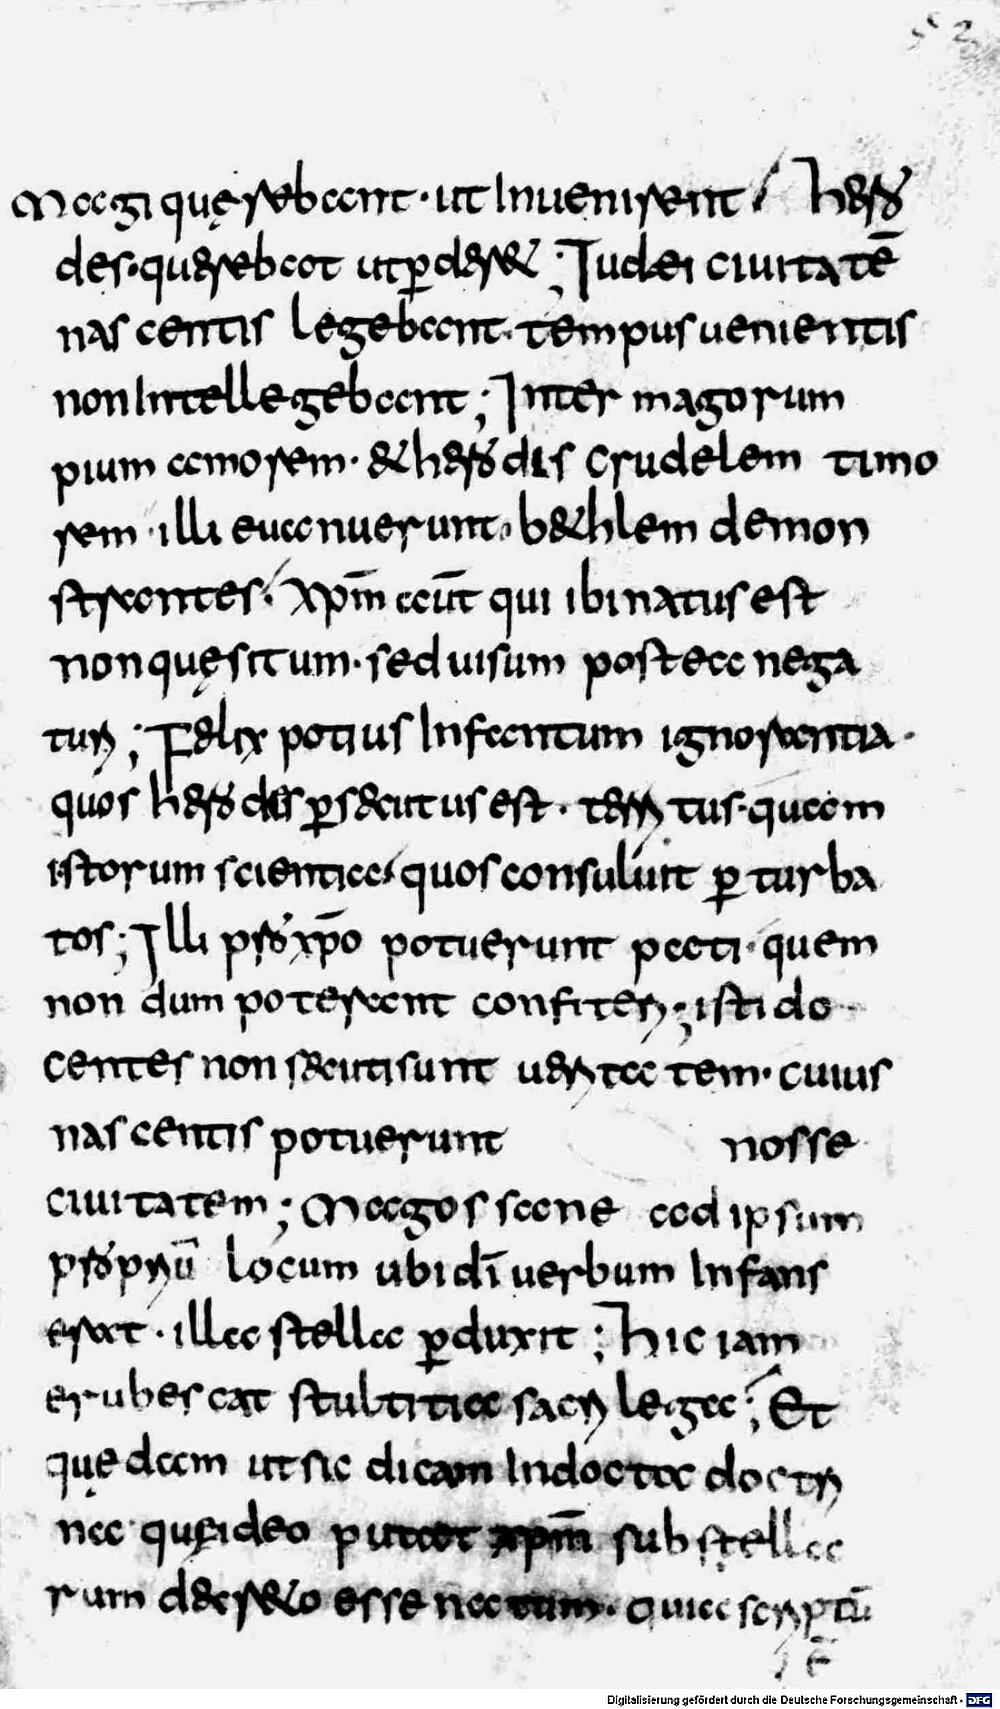 52
Magi quęrebant· ut Inuenirent / hero
des· querebat ut ꝑderet ; Iudei ciuitatē
nascentis legebant· tempus uenientis
non Intellegebant ; Inter magorum
pium amorem· & herodis crudelem timo
rem· illi euanuerunt· bethlem demon
strantes· xpm̄ aūt qui ibi natus est
non quęsitum· sed uisum postea nega
turi ; Felix potius Infantum ignorantia·
quos herodis ꝑsecutus est· territus· quam
istorum scientia· quos consuluit ꝑturba
tos ; Illi pro xp̄o potuerunt pati· quem
non dum poterant confiteri ; isti do
centes non secuti sunt ueritatem· cuius
nascentis potuerunt nosse
ciuitatem ; Magos sane ad ipsum
propriū locum ubi dī uerbum Infans
erat· illa stella ꝑduxit ; hic iam
erubescat stultitia sacrilega ; Et
quędam ut sic dicam Indocta doctri
na quę ideo putat xpm̄ sub stella
rum decreto esse natum· quia scriptū